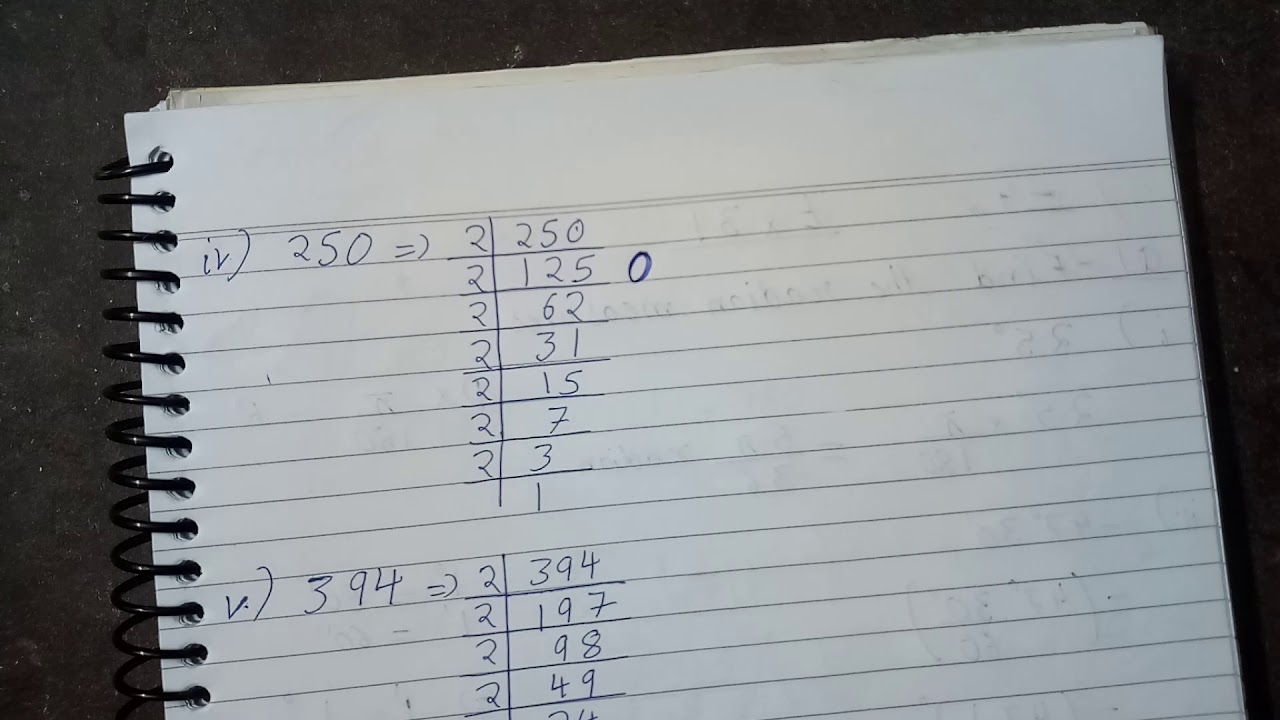 iv) 250 => 2 | 250
2 | 125 0
2 | 62
2 | 31
2 | 15
2 | 7
2 | 3
1
v.) 394 => 2 | 394
2 | 197
2 | 98
2 | 49
24